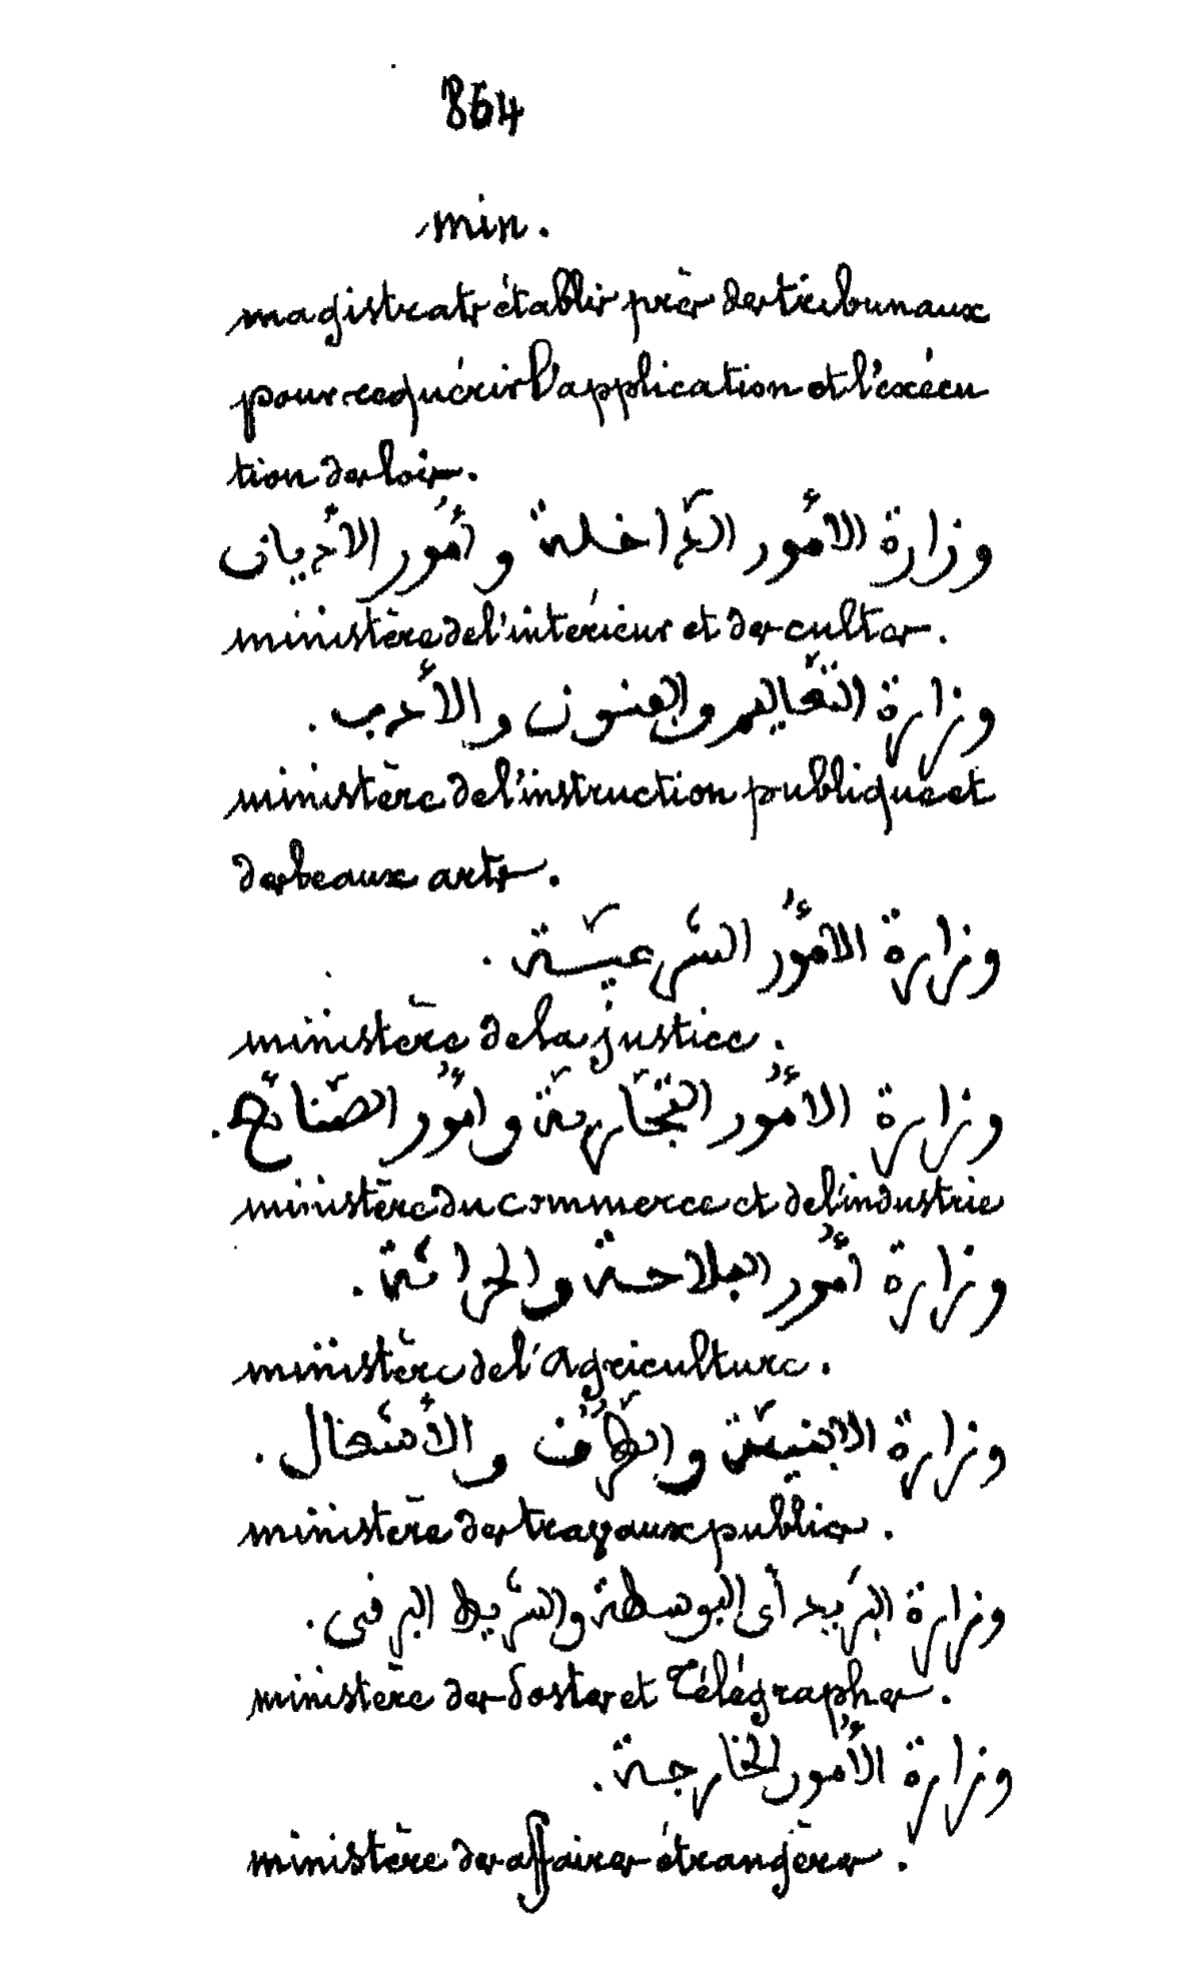 864
min.
magistrats établis près des tribunaux
pour requérir l'application et l'exécu
tion des lois.
وزارة الأمُور الدّاخلة وأمُور الأديان
ministère de l'intérieur et des cultes.
وزارة التّعاليم والفنون والأدب.
ministère de l'instruction publique et
des beaux arts.
وزارة الأمُور الشرعيّة.
ministère de la justice.
وزارة الأمُور التّجَارية وامُور الصّنائع.
ministère du commerce et de l'industrie
وزارة أمُور الفلاحة والحراثة.
ministère de l'Agriculture.
وزارة الابنية والطُرُق والأشغال.
ministère des travaux publics.
وزارة البَريد أى البوسطة والشريط البرقى.
ministère des Postes et Télégraphes.
وزارة الأمُور الخارجة.
ministère des affaires étrangères.